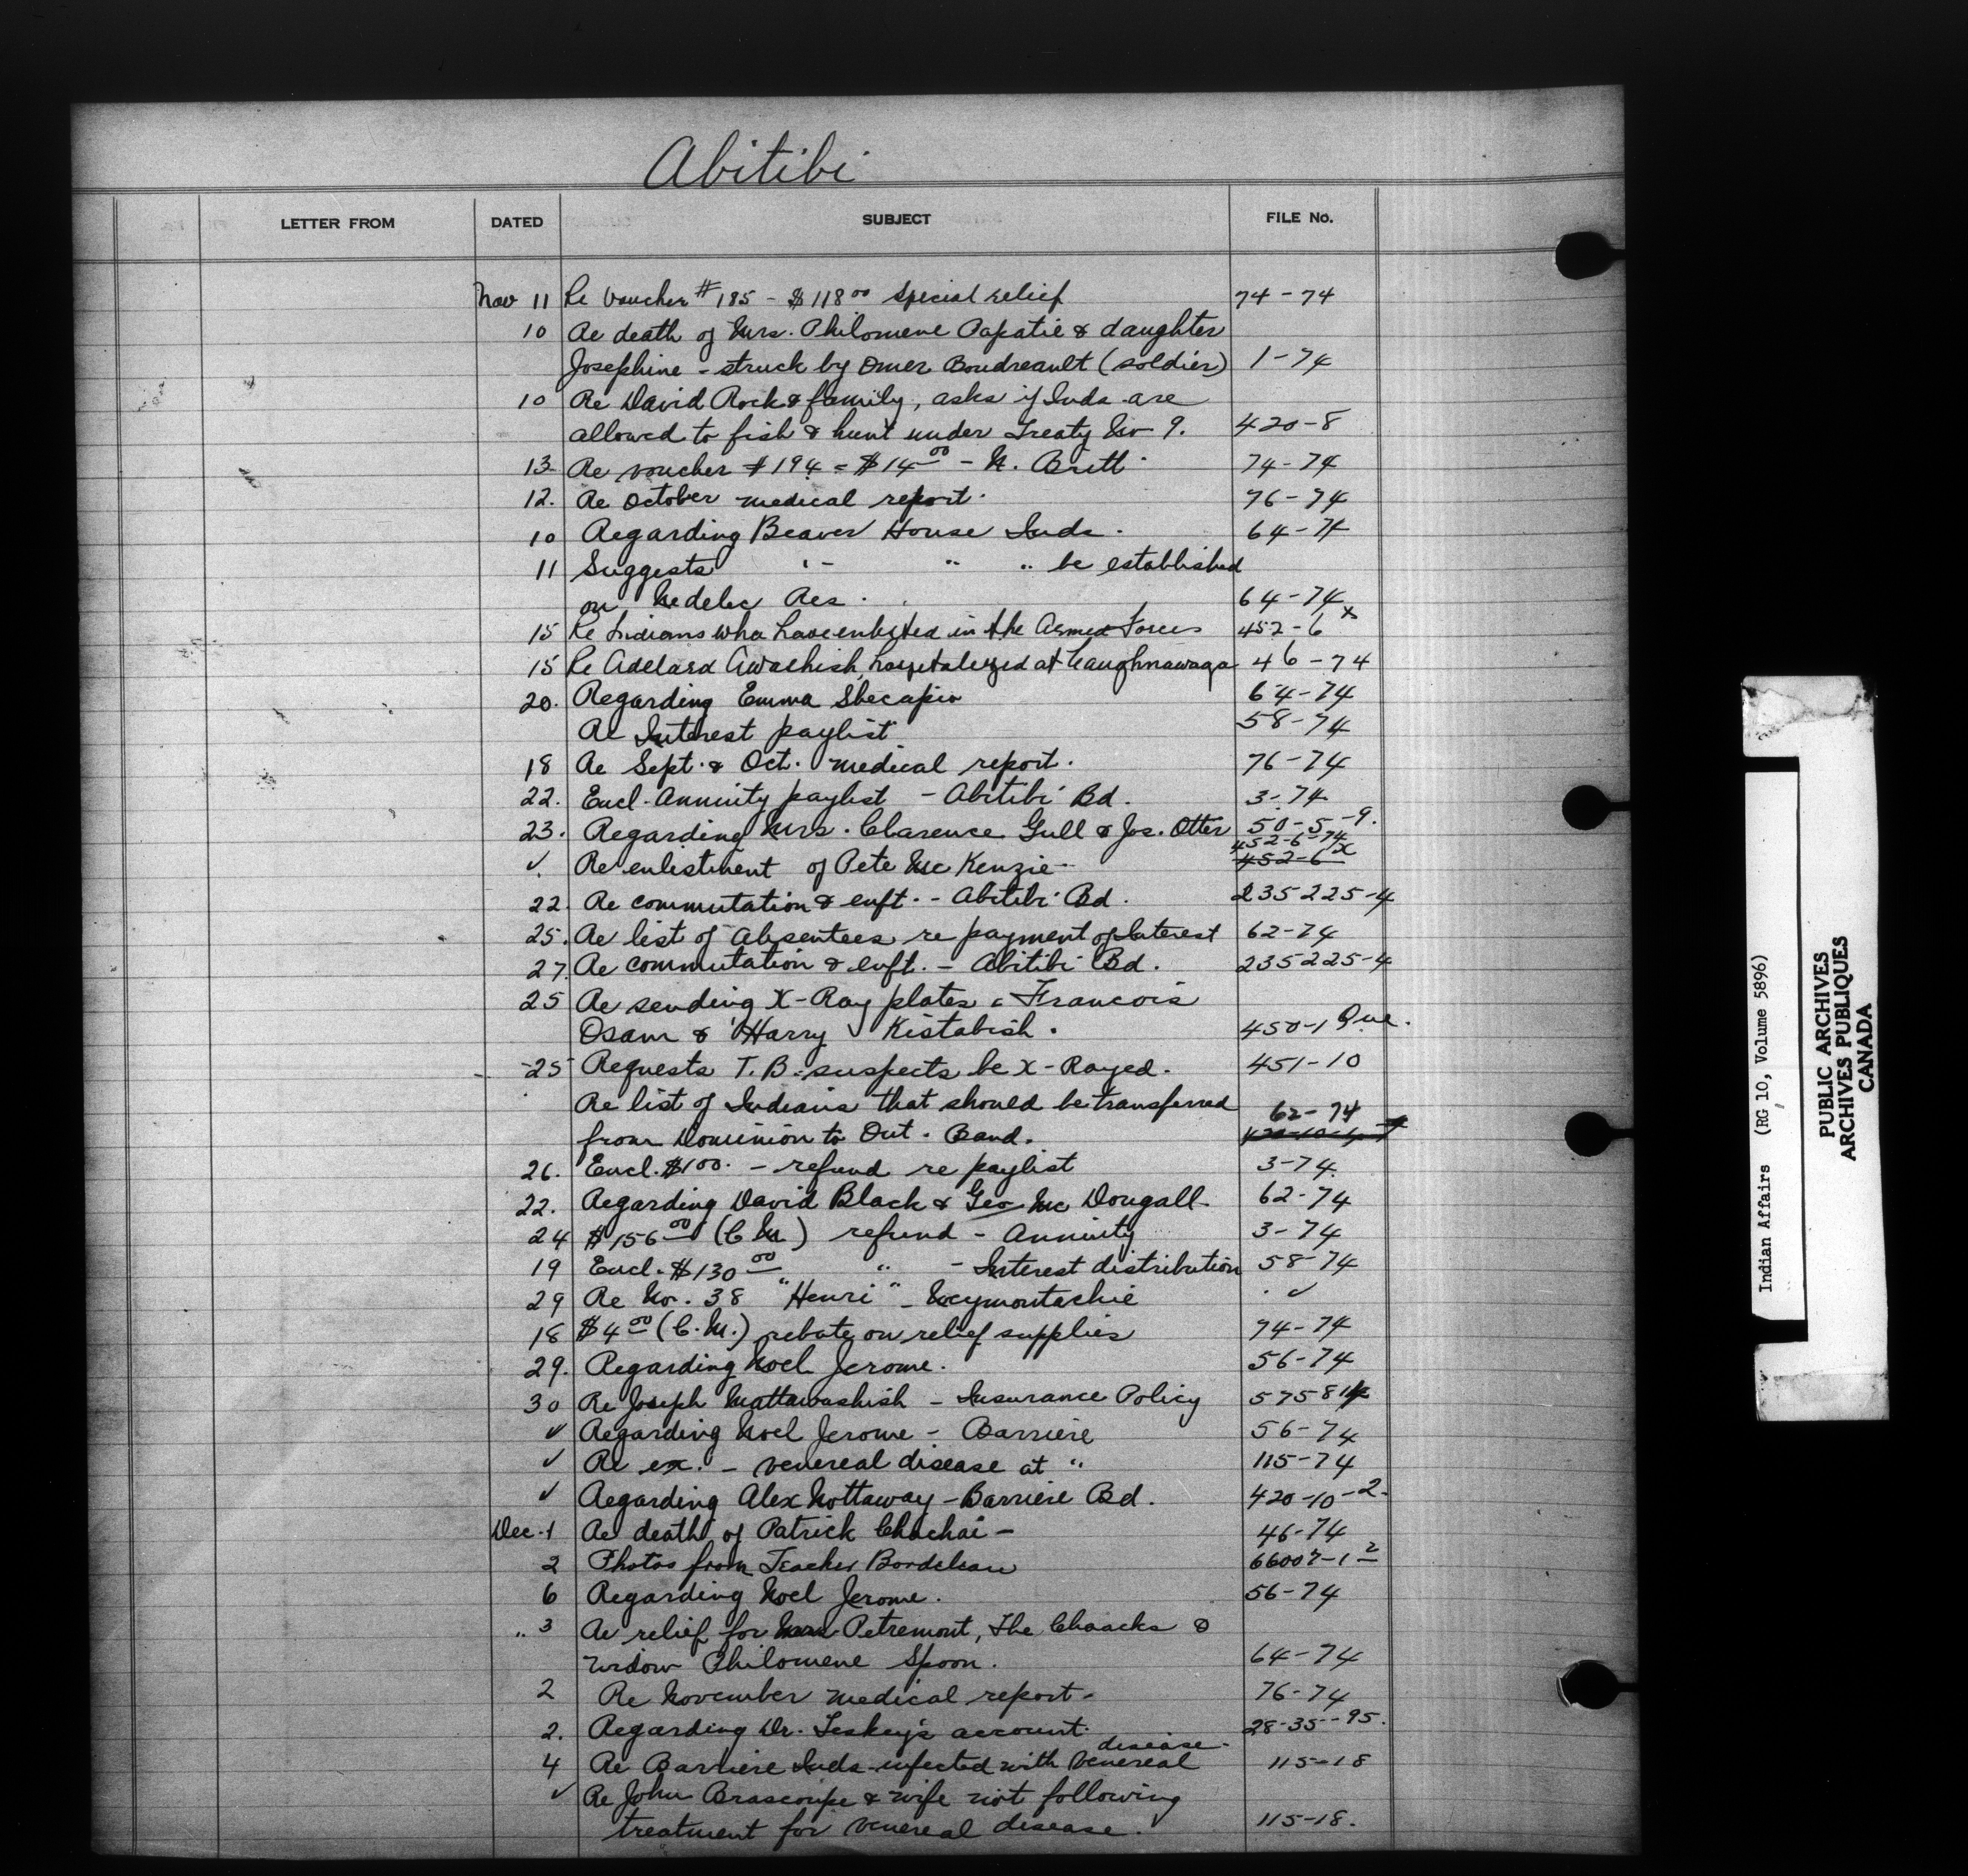 Abitibi
LETTER FROM DATED SUBJECT FILE No.
Nov 11 Re Voucher # 185 - $118 00 Special relief 74-74
10 Re death of Mrs. Philomene Papatie & daughter
Josephine - struck by Omer Boudreault (soldier) 1-74
10 Re David Rock & family, asks if Inds are
allowed to fish & hunt under Treaty No 9. 420-8
13 Re voucher #194 = $14 00 - N. Britt 74-74
12. Re October medical report. 76-74
10 Regarding Beaver House Inds. 64-74
11 Suggests " " " be established
on Nedelec Res. 64-74
15 Re Indians who have enlisted in the Armed Forces 452-6 x
15 Re Adelard Awashish, hospitalized at Caughnawaga 46-74
20. Regarding Emma Shecapio 64-74
Re Interest paylist 58-74
18 Re Sept. & Oct. medical report. 76-74
22. Encl. Annuity paylist - Abitibi Bd. 3-74
23. Regarding Mrs. Clarence Gull & Jos. Otter 50-5-9.
452-6-74
✓. Re enlistment of Pete Mc Kenzie 452-6 x
22. Re commutation & enft. - Abitibi Bd. 235225-4
25. Re list of absentees re payment of Interest 62-74
27. Re commutation & enft. - Abitibi Bd. 235225-4
25 Re sending X-Ray plates - Francois
Osam & Harry Kistabish. 450-1 Que.
25 Requests T.B. suspects be X-Rayed. 451-10
Re list of Indians that should be transferred 62-74
from Dominion to Ont. Band.
26. Encl. $100. - refund re paylist 3-74.
22. Regarding David Black & Geo Mc Dougall 62-74
24 $156 00 (C M.) refund - Annuity 3-74
19 Encl. $130 00 " - Interest distribution 58-74
29 Re No. 38 "Henri" - Weymontachie ✓
18 $4 00 (C. M.) rebate on relief supplies 74-74
29. Regarding Noel Jerome. 56-74
30 Re Joseph Mattawashish - Insurance Policy 57581
✓ Regarding Noel Jerome - Barriere 56-74
✓ Re ex. - venereal disease at " 115-74
✓ Regarding Alex Nottaway - Barriere Bd. 420-10-2.
Dec. 1 Re death of Patrick Chachai - 46-74
2 Photos from Teacher Bordeleau 66007-1 2
6 Regarding Noel Jerome. 56-74
" 3 Re relief for Petremont, The Chaacks &
widow Philomene Spoon. 64-74
2 Re November medical report. 76-74
2. Regarding Dr. Leskey's account. 28-35--95.
disease.
4 Re Barriere Inds infected with venereal 115-18
✓ Re John Brascoupe & wife not following
treatment for venereal disease. 115-18.
Indian Affairs (RG 10, Volume 5896)
PUBLIC ARCHIVES
ARCHIVES PUBLIQUES
CANADA